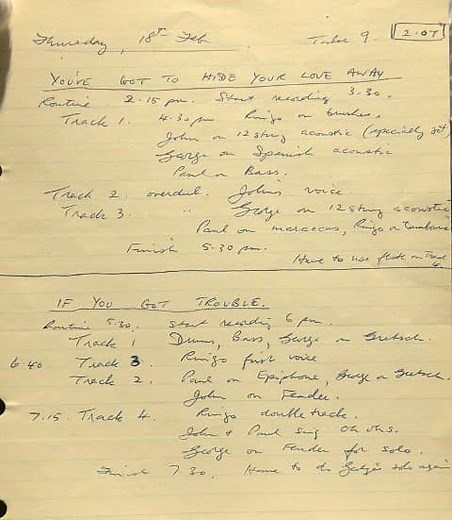 Thursday, 18th Feb Take 9. 2.07
YOU'VE GOT TO HIDE YOUR LOVE AWAY
Routine 2.15 pm. Start recording 3.30.
Track 1. 4.30 pm Ringo on brushes.
John on 12 string acoustic (specially
George on Spanish acoustic
Paul on Bass.
Track 2. overdub. John's voice.
Track 3. " George on 12 string acoustic
Paul on maraccas, Ringo on
Finish 5.30 pm.
Have to use flute on Track
IF YOU GOT TROUBLE.
Routine 5.30. Start recording 6 pm.
Track 1 Drums, Bass, George on Gretsch.
6.40 Track 3 Ringo first voice
Track 2. Paul on Epiphone, George on Gretsch.
John on Fender.
7.15. Track 4. Ringo doubletrack.
John & Paul sing Oh ohs.
George on Fender for solo.
Finish 7.30. Have to do solo again